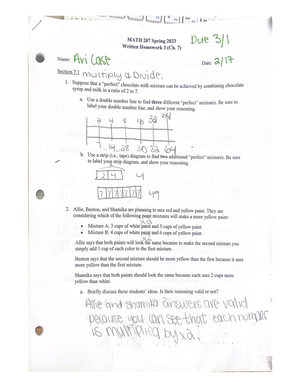 MATH 207 Spring 2023
Written Homework 3 (Ch. 7)
Due 3/1
Name: Ari Case
Date: 2/17
Section 7.1 multiply & Divide.
1. Suppose that a "perfect" chocolate milk mixture can be achieved by combining chocolate
syrup and milk in a ratio of 2 to 7.
a. Use a double number line to find three different "perfect" mixtures. Be sure to
label your double number line, and show your reasoning.
2 4 8 16 32 64
7 14 28 30 32 64
b. Use a strip (i.e., tape) diagram to find two additional "perfect" mixtures. Be sure
to label your strip diagram, and show your reasoning.
2 4 4
7 7 7 7 7 7 7 49
2. Allie, Benton, and Shamika are planning to mix red and yellow paint. They are
considering which of the following paint mixtures will make a more yellow paint:
• Mixture A: 3 cups of white paint and 5 cups of yellow paint
• Mixture B: 4 cups of white paint and 6 cups of yellow paint
Allie says that both paints will look the same because to make the second mixture you
simply add 1 cup of each color to the first mixture.
Benton says that the second mixture should be more yellow than the first because it uses
more yellow than the first mixture.
Shamika says that both paints should look the same because each uses 2 cups more
yellow than white.
a. Briefly discuss these students' ideas. Is their reasoning valid or not?
Allie and shamika answers are valid
because you can see that each number
is multiplied by x2.